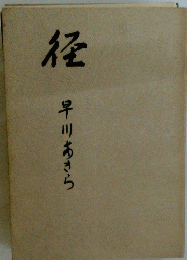 径
早川あきら